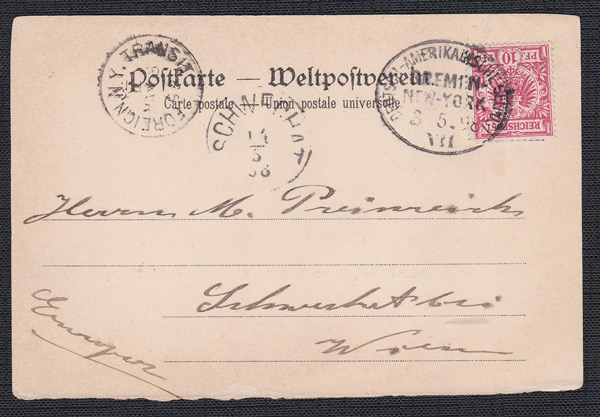 Postkarte — Weltpostverein
Carte postale — Union postale universelle
N.Y. TRANSIT
FOREIGN
SCHWECHAT
14
5
98
DEUTSCH-AMERIKANISCHE SEEPOST
BREMEN-
NEW-YORK
3 5 98
VII
PF 10 PF
REICHSPOST
Herrn M. Preinreich
Schwechat bei
Wien